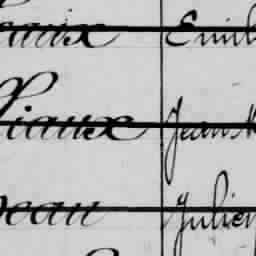 aux Emil
liaux Jean M
eau Julien